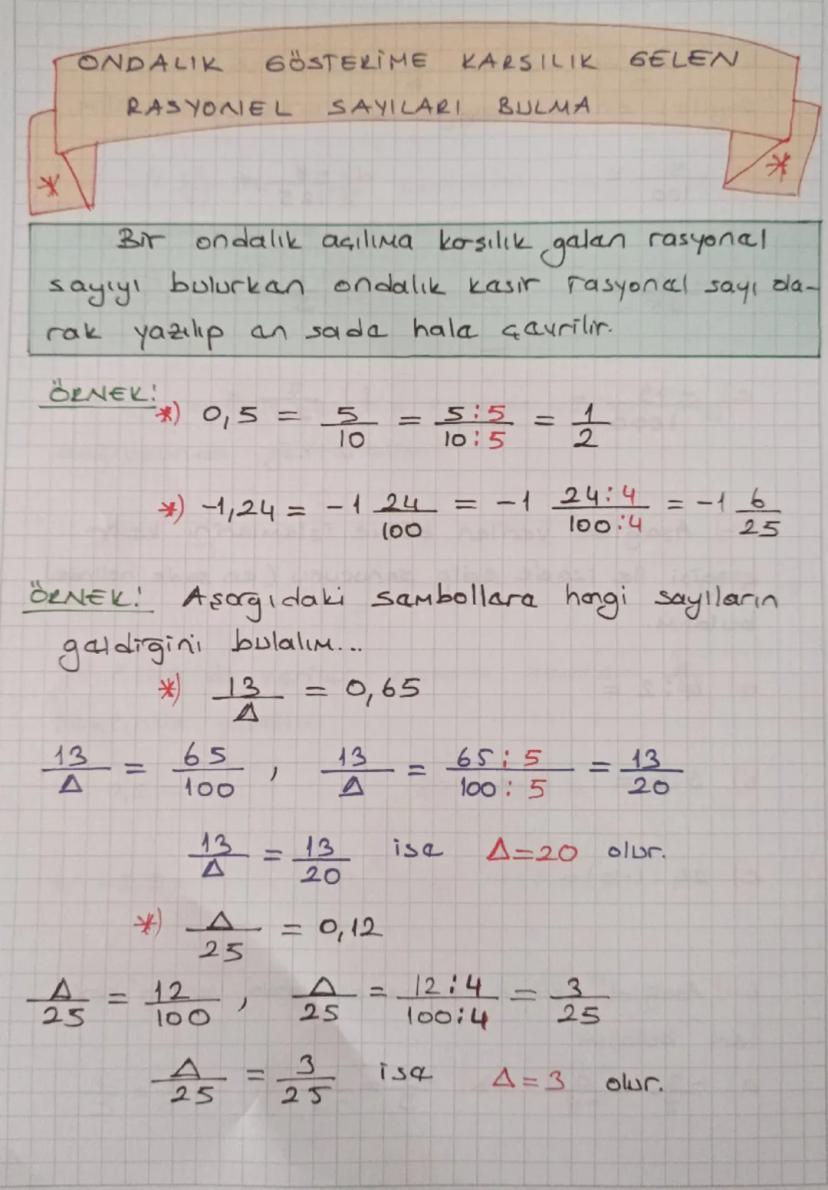 ONDALIK GÖSTERİME KARSILIK GELEN
RASYONEL SAYILARI BULMA
Bir ondalık açılıma karşılık gelen rasyonel
sayıyı bulurken ondalık kesir rasyonel sayı ola-
rak yazılıp en sade hale çevrilir.
ÖRNEK:
*) 0,5 = 5/10 = 5:5/10:5 = 1/2
*) -1,24 = -1 24/100 = -1 24:4/100:4 = -1 6/25
ÖRNEK: Aşağıdaki sembollere hangi sayıların
geldiğini bulalım...
*) 13/Δ = 0,65
13/Δ = 65/100 , 13/Δ = 65:5/100:5 = 13/20
13/Δ = 13/20 ise Δ=20 olur.
*) Δ/25 = 0,12
Δ/25 = 12/100 , Δ/25 = 12:4/100:4 = 3/25
Δ/25 = 3/25 ise Δ=3 olur.